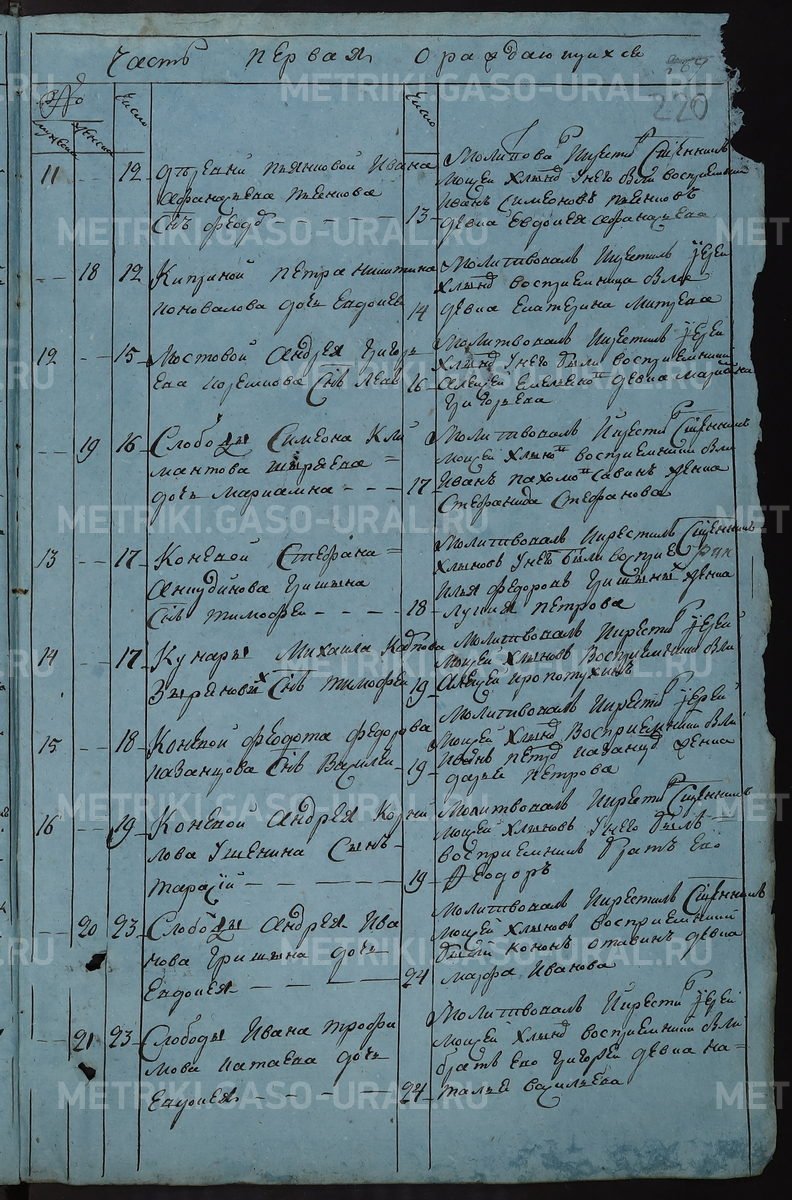 Часть первая о раждающихся
220
№
Число
Число
мужеска
женска
11 12 Ивана
Афанасьева Пьянкова
Сынъ Феодоръ
Молитвовалъ Икрести Священникъ
Мосей Хлынов У него были восприемники
Иванъ Симеоновъ Пьянковъ
13 девка Евдокия Афанасьева
18 12 Киприной Петра Никитина
Коновалова дочь Евдокея
Молитвовалъ Икрестилъ Іерей
Хлынов восприемница была
14 девка Екатерина Митрева
12 15 Мостовой Андрея Григорь
ева сынъ Левъ
Молитвовалъ Икрестилъ Іерей
Хлынов У него были восприемники
16 Алексей девка Марианна
Григорьева
19 16 Слободы Симеона Кли
мантова Ширяева
дочь Мариамна
Молитвовалъ Икрести Священникъ
Мосей Хлынов восприемники были
17 Иванъ Пахомов Савинъ женка
Стефанида Стефанова
13 17 Коневой Стефана
Анкудинова Гришина
Сынъ Тимофей
Молитвовалъ Икрестилъ Священникъ
Хлыновъ У него были восприемники
Илья Федоровъ Гришинъ женка
18 Лукия Петрова
14 17 Кунары Михаила
Зыряновых Сынъ Тимофей
Молитвовалъ Икрести Іерей
Мосей Хлыновъ Восприемники были
19 Алексей Коропотухинъ
15 18 Коневой Феодота Федорова
Казанцова Сынъ Василей
Молитвовалъ Икрести Іерей
Мосей Хлынов Восприемники были
Иванъ Петров Казанцов женка
19 Дарья Петрова
16 19 Коневой Андрея Корни
лова Ушенина Сынъ
Тарасий
Молитвовалъ Икрести Священникъ
Мосей Хлыновъ У него былъ
восприемникъ братъ ево
19 Феодоръ
20 23 Слободы Андрея Ива
нова Гришина дочь
Евдокея
Молитвовалъ Икрестилъ Священникъ
Мосей Хлыновъ восприемники
были Кононъ девка
24 Марфа Иванова
21 23 Слободы Ивана Трофи
мова Катаева дочь
Евдокея
Молитвовалъ Икрести Іерей
Мосей Хлынов восприемники были
братъ ево Григорей девка На=
24 талья Васильева
METRIKI.GASO-URAL.RU